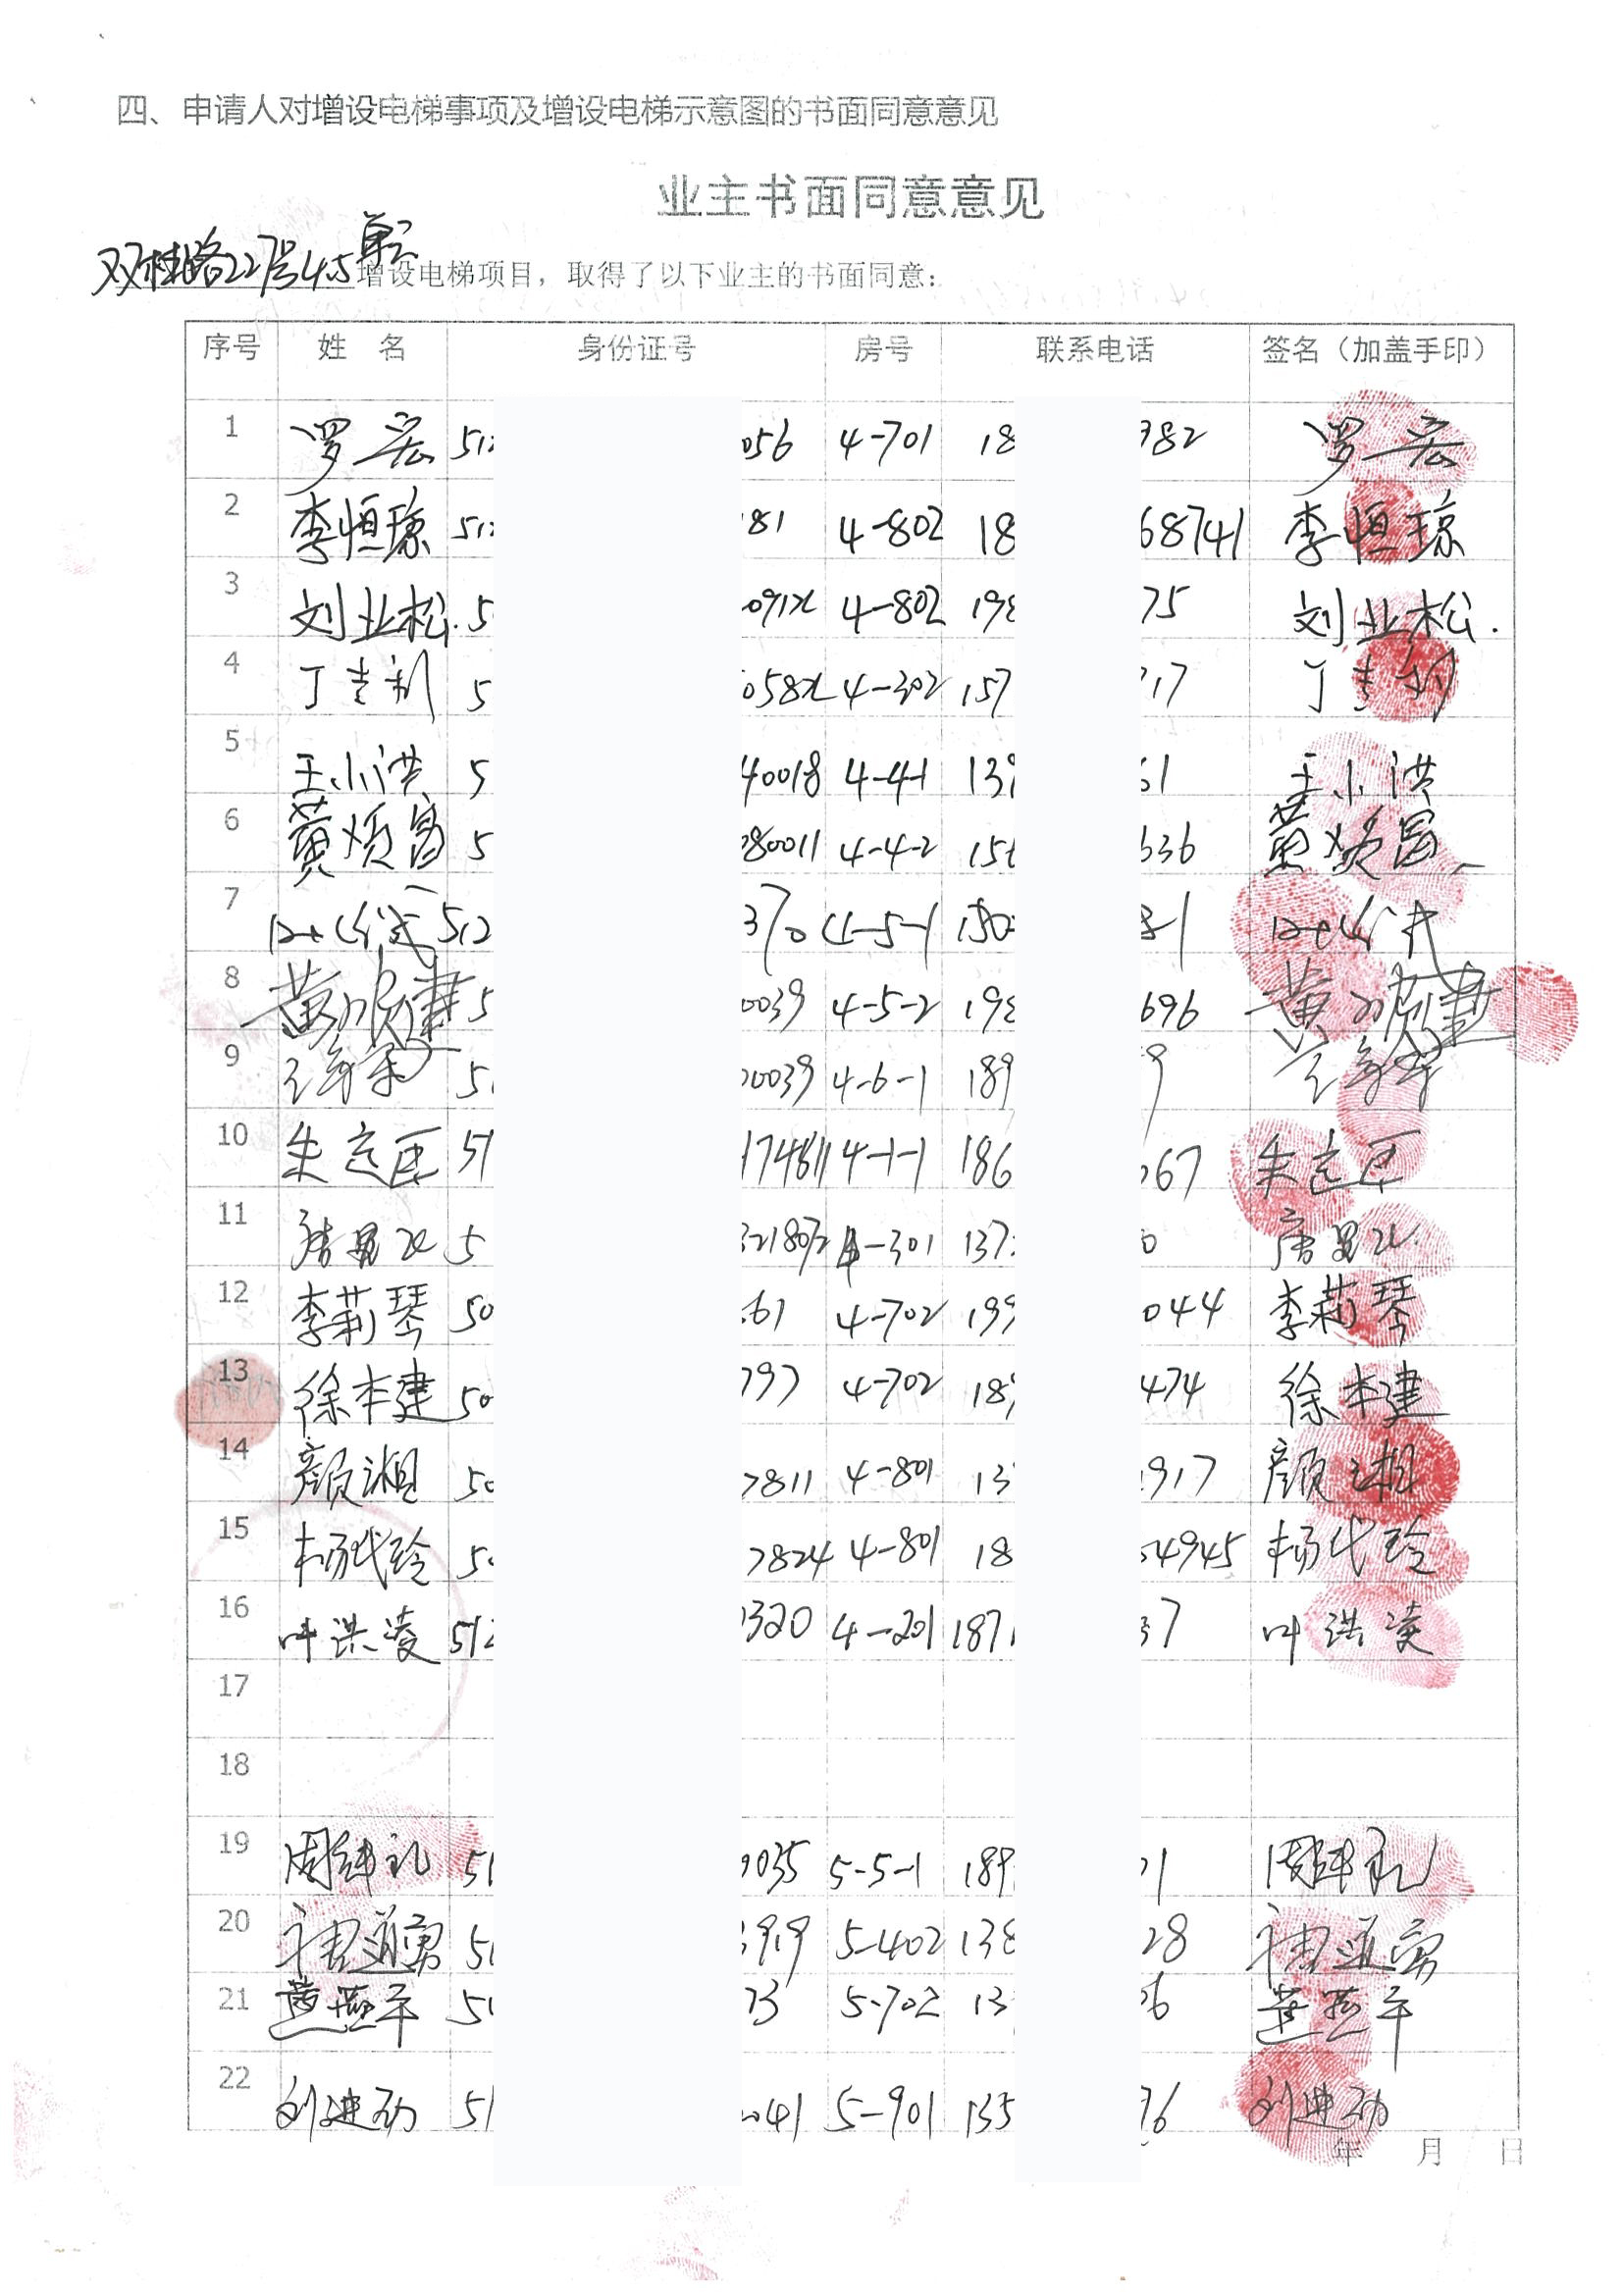 四、申请人对增设电梯事项及增设电梯示意图的书面同意意见
业主书面同意意见
双桂路227号4.5单元
增设电梯项目，取得了以下业主的书面同意：
序号 姓 名 身份证号 房号 联系电话 签名（加盖手印）
1 罗宏 512 056 4-701 18 982 罗宏
2 李恒琼 512 181 4-802 18 68741 李恒琼
3 刘业松. 5 091x 4-802 198 75 刘业松.
4 丁吉利 5 058x 4-302 157 917 丁吉利
5 王小洪 5 40018 4-4-1 139 61 王小洪
6 黄 5 080011 4-4-2 156 636 黄
7 512 370 4-5-1 150 81
8 黄 5 0039 4-5-2 198 696 黄
9 5 00039 4-6-1 189 9
10 朱定 51 174811 4-1-1 186 067 朱定
11 5 4-301 137 0
12 李莉琴 50 61 4-702 199 044 李莉琴
13 徐本建 50 797 4-702 189 474 徐本建
14 颜湘 50 7811 4-801 13 917 颜湘
15 杨代玲 50 7824 4-801 18 54945 杨代玲
16 叶洪凌 512 0320 4-201 187 37 叶洪凌
17
18
19 周 51 0035 5-5-1 189 01 周
20 51 3919 5-402 138 28
21 51 73 5-702 13 06
22 刘建 51 041 5-901 135 76 刘建
年 月 日